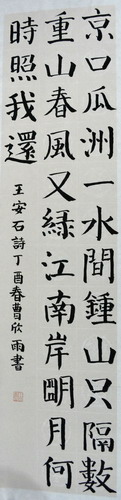 京口瓜洲一水間鍾山只隔數
重山春風又綠江南岸朙月何
時照我還
王安石詩丁酉春曹欣雨書